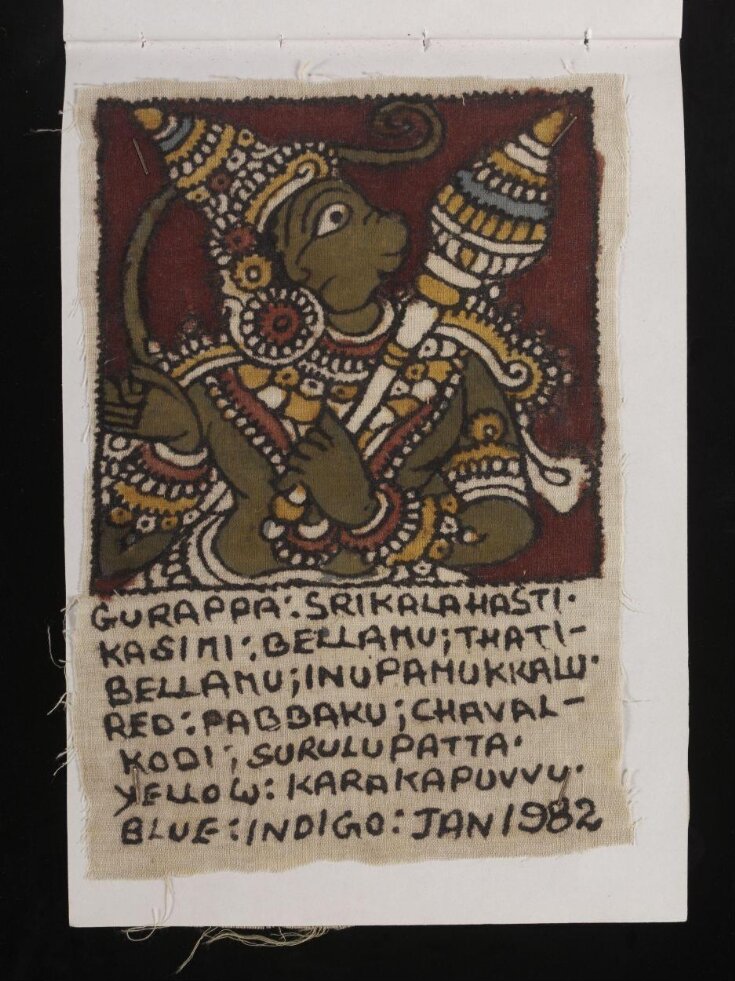 GURAPPA: SRIKALAHASTI.
KASIMI: BELLAMU; THATI-
BELLAMU; INUPAMUKKALU.
RED: PABBAKU; CHAVAL-
KODI; SURULUPATTA.
YELLOW: KARAKAPUVVU.
BLUE: INDIGO: JAN 1982